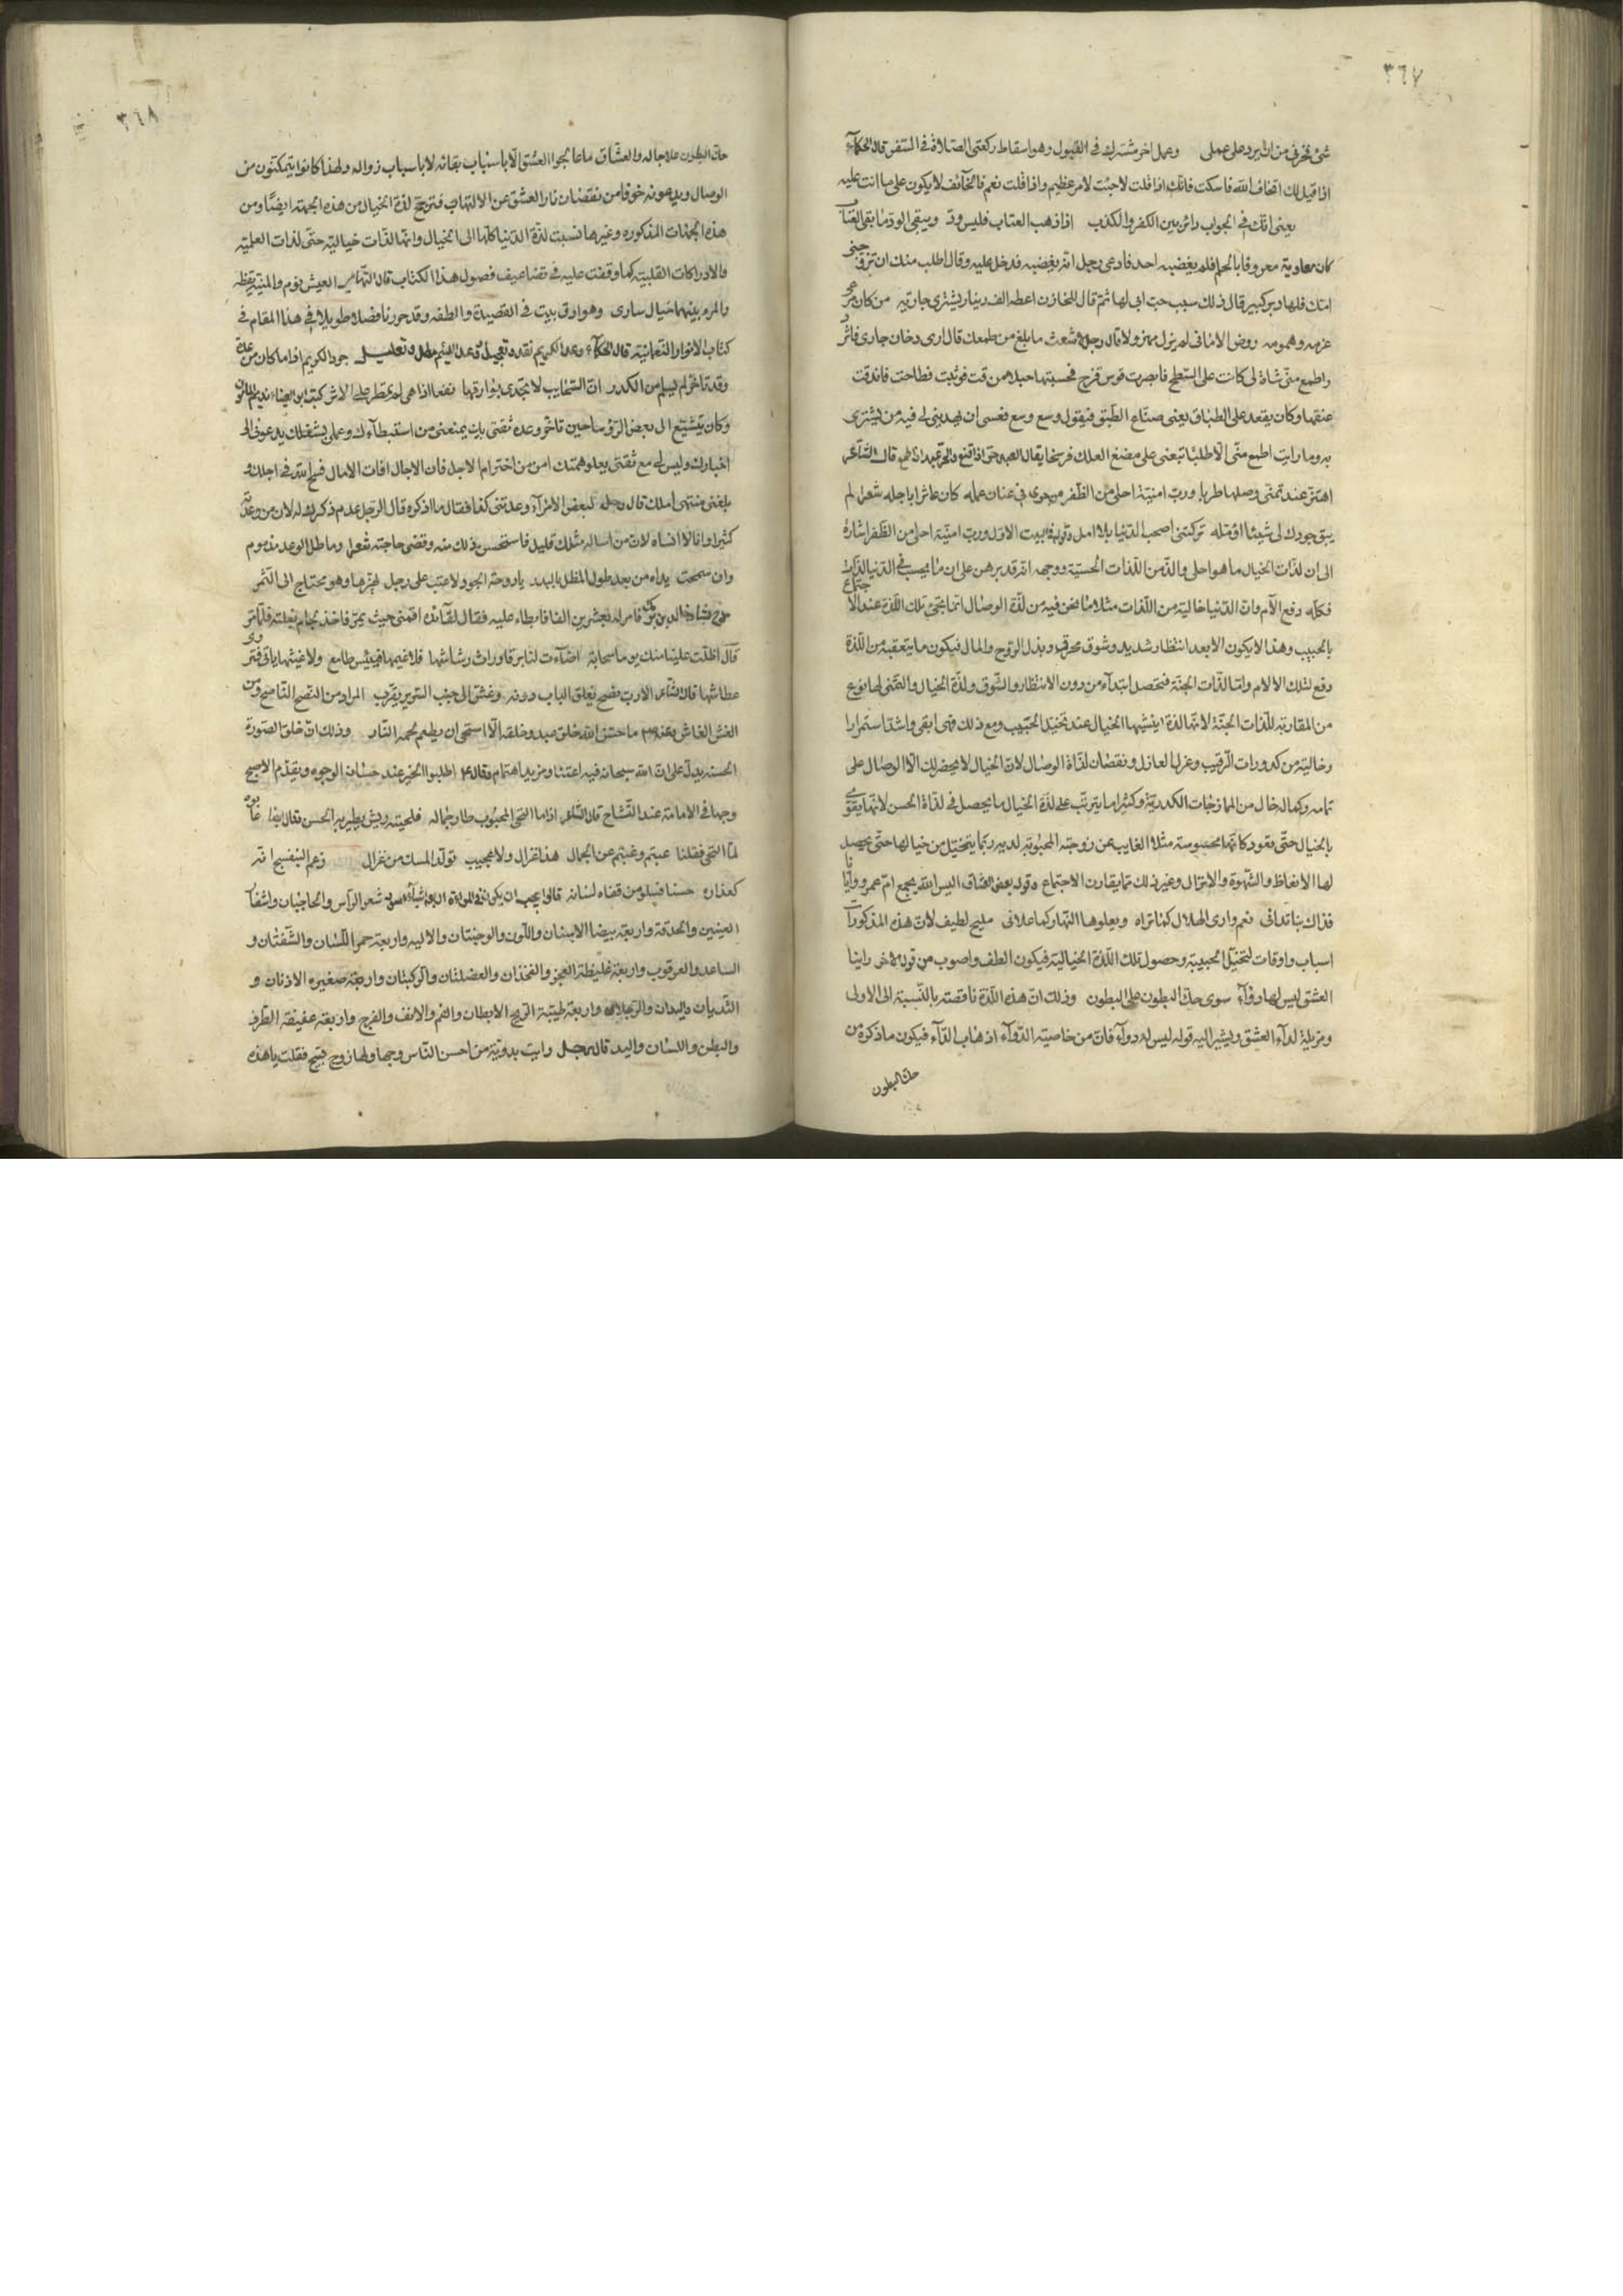 ٣٦٧
شئ نخرف من ان يرد على عملى وعمل اخر مشترك فى القبول وهو اسقاط ركعتى الصلاة فى السفر قال الحكماء
اذا قيل لك اتخاف الله فاسكت فانك اذا قلت لا جئت لامر عظيم واذا قلت نعم فالخائف لا يكون على ما انت عليه
يعنى انك فى الجواب دائر بين الكفر والكذب اذا ذهب العتاب فليس ود ويبقى الود ما بقى العتاب
كان معاوية معروفا بالحلم فلم يغضبه احد فادعى رجل انه يغضبه فدخل عليه وقال اطلب منك ان تزوجنى
امك فلها دبر كبير قال ذلك سبب حب ابى لها ثم قال للخازن اعطه الف دينار يشترى جارية من كان مرعى
عزمه وهمومه روض الامانى لم يزل مهزولا قال رجل لاشعث ما بلغ من طمعك قال ارى دخان جارى فاثرد
واطمع منى شاة لى كانت على السطح فابصرت قوس قزح فحسبتها حبلا من قت فوثبت فطاحت فاندقت
عنقها وكان يقعد على الطباق يعنى صناع الطبق فيقول وسع وسع فعسى ان يهدينى لى فيه من يشترى
به وما رايت اطمع منى الا طلبا تبعنى على مضغ العلك فرسخا يقال العبد حر اذا قنع والحر عبد اذا طمع قال الشاعر
اهتز عند تمنى وصلها طربا ورب امنية احلى من الظفر من جوى فى عنان عمله كان عاثرا باجله شعر لم
يبق جودك لى شيئا اؤمله تركتنى اصحب الدنيا بلا امل قوله فى البيت الاول ورب امنية احلى من الظفر اشارة
الى ان لذات الخيال ما هو احلى والذ من اللذات الحسية ووجهه انه قد برهن على ان ما يحسب فى الدنيا لذات
فكله دفع الآم وان الدنيا خالية من اللذات مثلا ما نحن فيه من لذة الوصال انما تجئ تلك اللذة عند الاجتماع
بالحبيب وهذا لا يكون الا بعد انتظار شديد وشوق محرق وبذل الروح والمال فيكون ما يتعقبه من اللذة
دفع لتلك الالام واما لذات الجنة فتحصل ابتداء من دون الانتظار والشوق ولذة الخيال والتمنى لها نوع
من المقاربة للذات الجنة لانها لذة اينشيها الخيال عند تخيل الحبيب ومع ذلك فهى ابقى واشد استمرارا
وخالية من كدورات الرقيب وعزل العازل ونقصان لذة الوصال لان الخيال لا يحضر لك الا الوصال على
تمامه وكماله خال من الممازجات الكدرية وكثيرا ما يترتب على لذة الخيال ما يحصل فى لذة الحسن لانها يقوى
بالخيال حتى تعود كانها محسوسة مثلا الغايب عن زوجته المحبوبة لديه ربما يتخيل من خيالها حتى يحصل
لها الانعاظ والشهوة والانزال وغير ذلك مما يقارن الاجتماع وقول بعض العشاق اليس الله يجمع ام عمرو وايانا
فذاك بنا تدانى نعم وارى الهلال كما تراه ويعلوها النهار كما علانى مليح لطيف لان هذه المذكورات
اسباب واوقات لتخيل الحبيبة وحصول تلك اللذة الخيالية فيكون الطف واصوب من قول الاخر راينا
العشق ليس لها دواء سوى حك البطون على البطون وذلك ان هذه اللذة ناقصة بالنسبة الى الاولى
ومزيلة لداء العشق ويشير اليه قوله ليس له دواء فان من خاصية الدواء اذهاب الداء فيكون ما ذكره من
حك البطون
٣٦٨
حك البطون علاجا له والعشاق ما عالجوا العشق الا باسباب بقائه لا باسباب زواله ولهذا كانوا يتمكنون من
الوصال ويدعونه خوفا من نقصان نار العشق عن الالتهاب فترجح لذة الخيال من هذه الجهة ايضا ومن
هذه الجهات المذكوره وغيرها نسبت لذة الدنيا كلها الى الخيال وانها لذات خيالية حتى لذات العلمية
والادراكات القلبية كما وقفت عليه فى تضاعيف فصول هذا الكتاب قال التهامى العيش نوم والمنية يقظة
والمرء بينهما خيال سارى وهو ارق بيت فى القصيدة والطفه وقد حررنا فصلا طويلا فى هذا المقام فى
كتاب الانوار النعمانية قال الحكماء وعد الكريم نقد وتعجيل ووعد اللئيم مطل وتعليل جود الكريم اذا ما كان من عدة
وقد تاخر لم يسلم من الكدر ان السحايب لا تجدى بوارقها نفعا اذا هى لم تمطر على الاثر كتب ابن العيناء نديم المتوكل
وكان يتشيع الى بعض الرؤساء حين تاخر وعده ثقتى بك يمنعنى من استبطاءك وعملى بشغلك يدعونى الى
اخبارك وليس لى مع ثقتى بعلو همتك امن من اخترام الاجل فان الاجال افات الامال فسح الله فى اجلك و
بلغنى منتهى املك قال رجل لبعض الامراء وعدتنى كفا فقال ما اذكره قال الرجل عدم ذكرك له لان من وعدته
كثيرا وانا لا انساه لان من اساله مثلك قليل فاستحسن ذلك منه وقضى حاجته شعر وما طل الوعد مذموم
وان سمحت يداه من بعد طول المطل بالبدر يا دوحة الجود لا عتب على رجل يهزها وهو محتاج الى الثمر
مدح بشار خالد بن برمك فامر له بعشرين الفا فابطاء عليه فقال لقائده اقمنى حيث يمر فاخذ بلجام بغلته فلما مر
قال اظلت علينا منك يوما سحابة اضاءت لنا برقا وراث رشاشها فلا غيمها فييئس طامع ولا غيثها ياتى فتروى
عطاشها قال الشاعر الارب نصح يغلق الباب دونه وغش الى جنب السرير يقرب المراد من النصح الناصح ومن
الغش الغاش وعنه ما حسن الله خلق عبد وخلقه الا استحى ان يطعم لحمه النار وذلك ان خلق الصورة
الحسنة يدل على ان الله سبحانه فيه اعتنا ومزيد اهتمام وقال اطلبوا الخير عند حسان الوجوه ويقدم الاصبح
وجها فى الامامة عند التشاح قال الشاعر اذا ما التحى المحبوب طار جماله فلحيته ريش يطير به الحسن وقال عابوه
لما التحى فقلنا عبتم وغبتم عن الجمال هذا غزال ولا عجيب تولد المسك من غزال زعم البنفسج انه
كعذاره حسنا فسلو من قفاه لسانه قالوا يجب ان يكون فى المراة اربعة اشياء اسود شعر الراس والحاجبان واشفار
العينين والحدقة واربعة بيضا الاسنان واللون والوجنتان والاليه واربعة حمر اللسان والشفتان و
الساعد والعرقوب واربعة غليظة العجز والفخذان والعضلتان والركبتان واربعة صغيره الاذنان و
الثديان واليدان والرجلان واربعة طيبة الريح الابطان والفم والانف والفرج واربعة عفيفة الطرف
والبطن واللسان واليد قال رجل رايت بدوية من احسن الناس وجها ولها زوج قبيح فقلت يا هذه